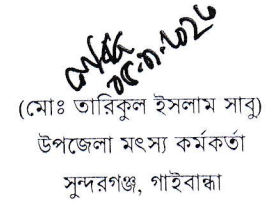 (মোঃ তারিকুল ইসলাম সাবু)
উপজেলা মৎস্য কর্মকর্তা
সুন্দরগঞ্জ, গাইবান্ধা